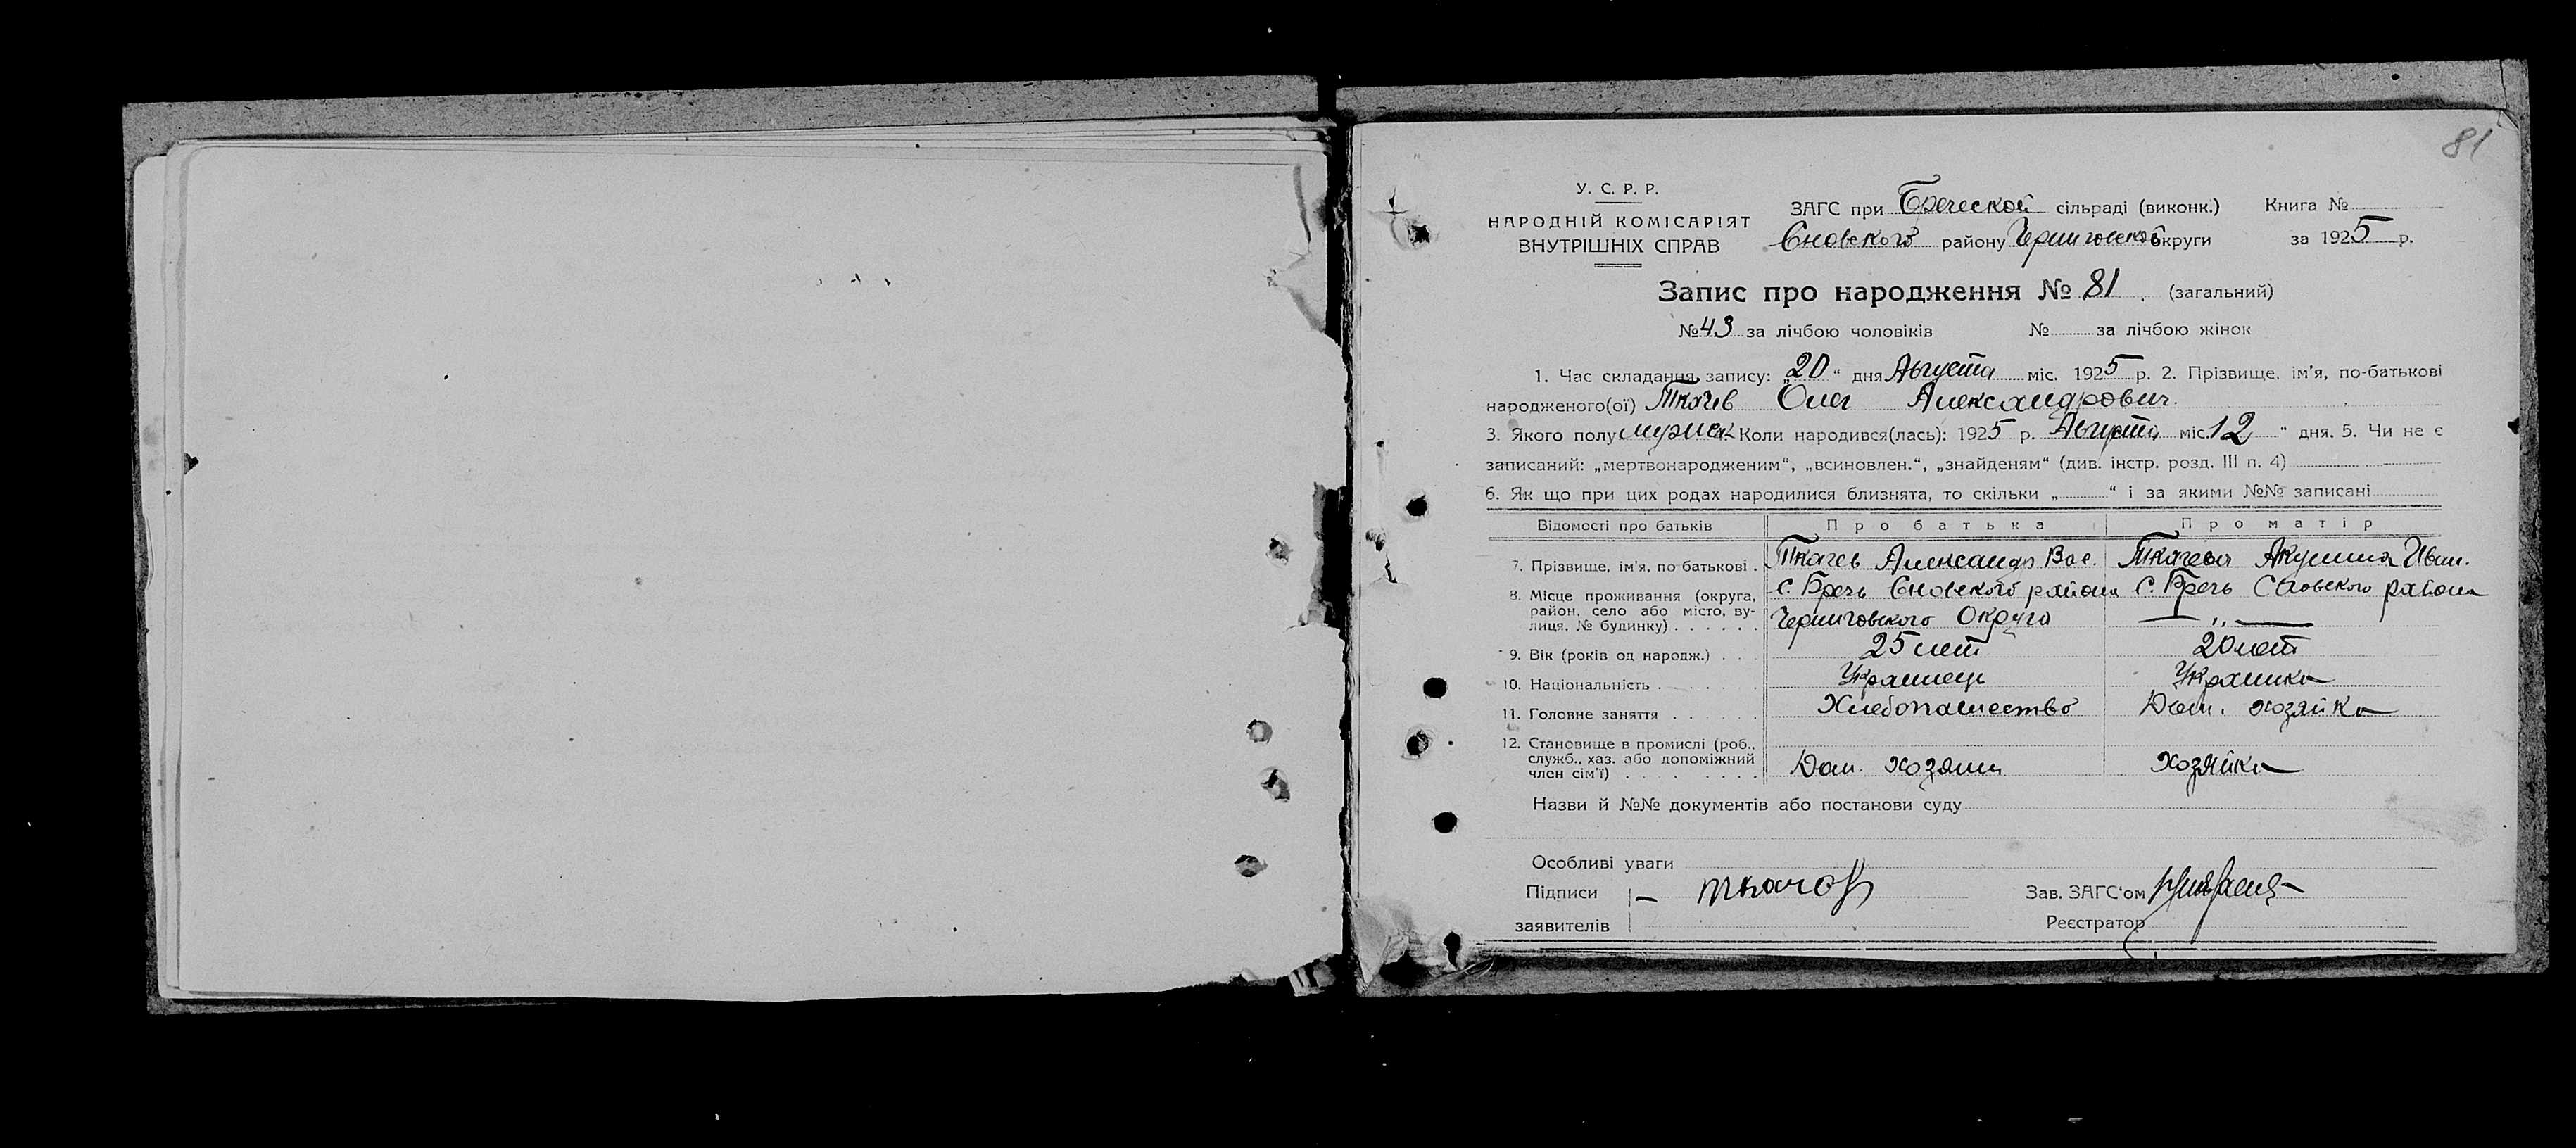 81
У. С. Р. Р.
НАРОДНІЙ КОМІСАРІЯТ
ВНУТРІШНІХ СПРАВ
ЗАГС при Бреческой сільраді (виконк.) Книга №
Сновского району Черниговской округи за 1925 р.
Запис про народження № 81. (загальний)
№ 43 за лічбою чоловіків № за лічбою жінок
1. Час складання запису: „20“ дня Августа міс. 1925 р. 2. Прізвище, ім'я, по-батькові
народженого(ої) Ткачев Олег Александрович.
3. Якого полу мужск. Коли народився(лась): 1925 р. Августа міс. 12“ дня. 5. Чи не є
записаний: „мертвонародженим“, „всиновлен.“, „знайденям“ (див. інстр. розд. III п. 4)
6. Як що при цих родах народилися близнята, то скільки „ “ і за якими №№ записані
Відомості про батьків Про батька Про матір
7. Прізвище, ім'я, по батькові . Ткачев Александр Вас. Ткачева Акулина Иван.
8. Місце проживання (округа, район, село або місто, вулиця, № будинку) с. Бречь Сновского района Черниговского Округа с. Бречь Сновского района — „ —
9. Вік (років од народж.) 25 лет 20 лет
10. Національність Украинец Украинка
11. Головне заняття Хлебопашество Дом. хозяйка
12. Становище в промислі (роб., служб., хаз. або допоміжний член сім'ї) Дом. хозяин Хозяйка
Назви й №№ документів або постанови суду
Особливі уваги
Підписи — Ткачов Зав. ЗАГС'ом
заявителів Реєстратор